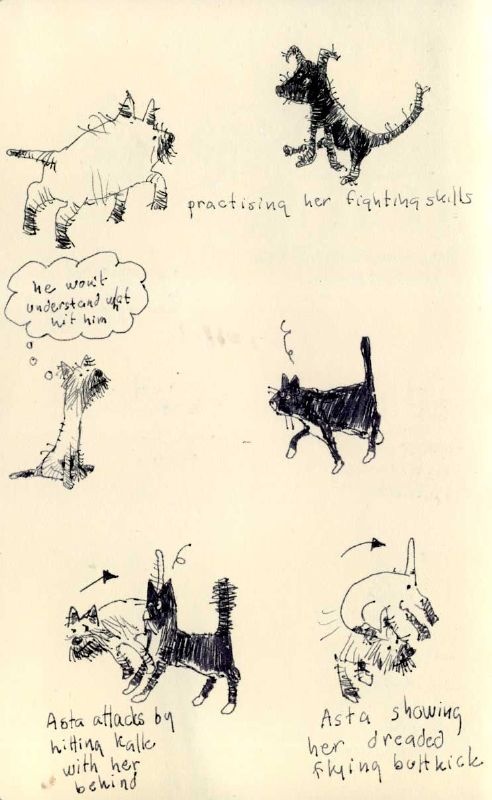 practising her fighting skills
he won't
understand what
hit him
Asta attacks by
hitting Kalle
with her
behind
Asta showing
her dreaded
flying buttkick